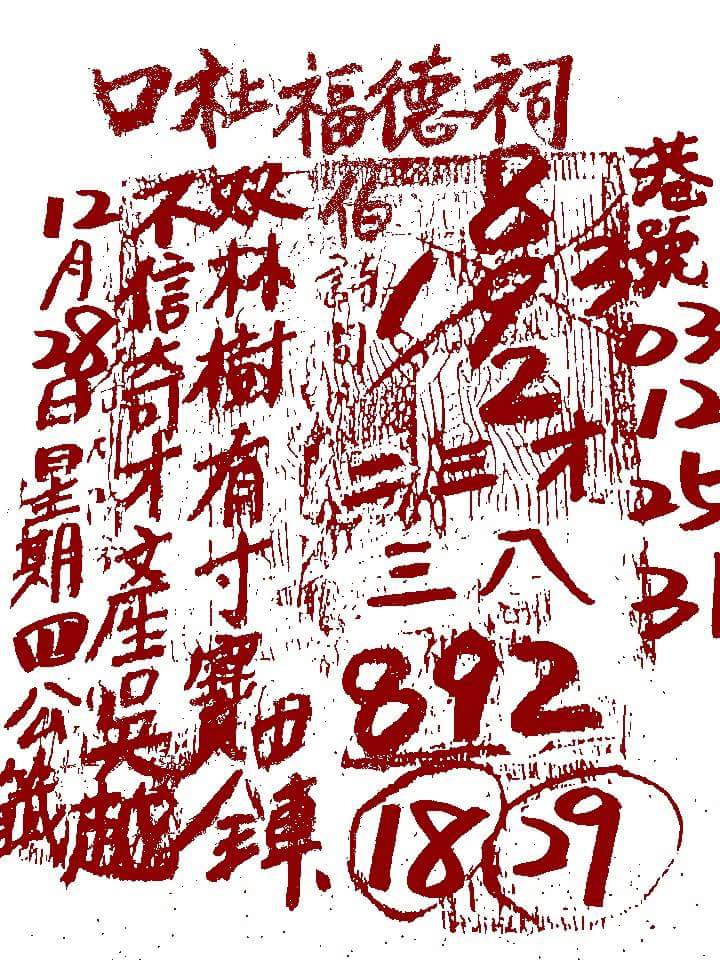 口社福德祠
港號
03
12
25
31
伯
8
1 9 3
2
二三才
三八
892
18 29
奴林樹有寸寶田鍊
不信奇才文產吳越
12月28日星期四公籤